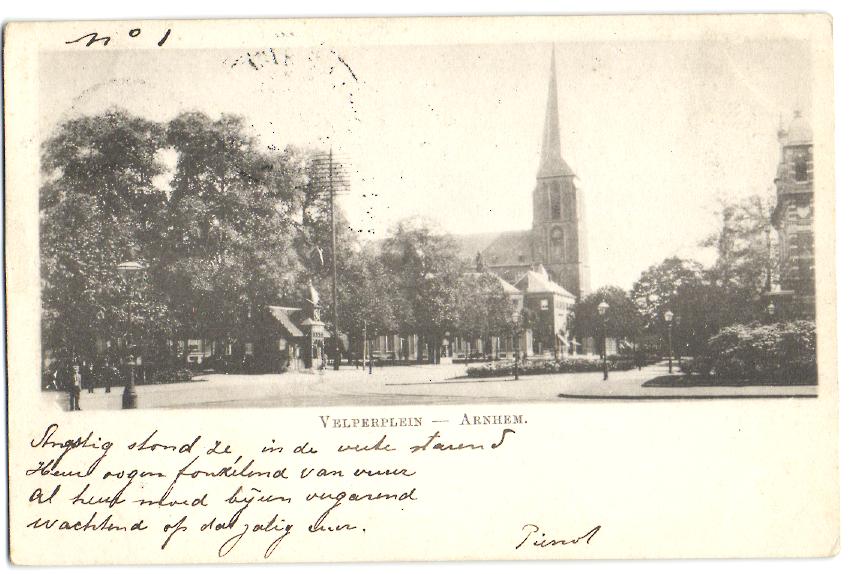 No 1
VELPERPLEIN — ARNHEM.
Angstig stond ze, in de verte starend
Heur oogen fonkelend van vuur
Al heur moed bijeen vergarend
Wachtend op dat zalig uur.
Pierrot